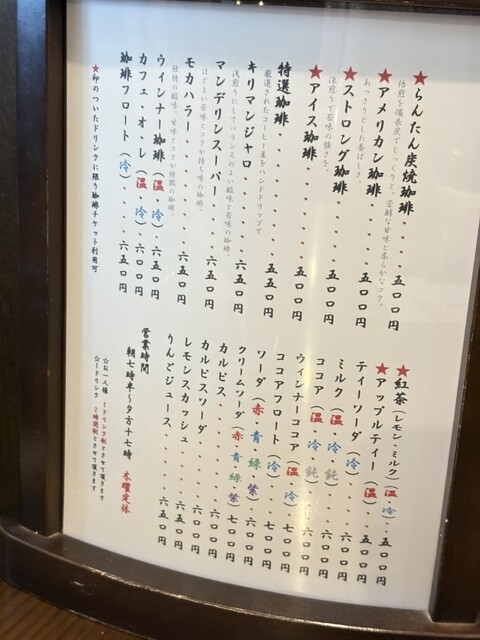 ★らんたん炭焼珈琲・・・五〇〇円
焙煎を備長炭でじっくりと。芳醇な甘味と柔らかなコク。
★アメリカン珈琲・・・・五〇〇円
あっさりとした香ばしさ。
★ストロング珈琲・・・・五〇〇円
深煎りで苦味の強さを。
★アイス珈琲・・・・・・五〇〇円
特選珈琲・・・・・・・・五五〇円
厳選されたコーヒー豆をハンドドリップで
キリマンジャロ・・・・・五五〇円
浅煎りにしてバランスのよい酸味と苦味の珈琲。
マンデリンスーパー・・・六五〇円
ほどよい苦味とコクが持ち味の珈琲。
モカハラー・・・・・・・六五〇円
独特の酸味、甘味とコクが特徴の珈琲。
ウィンナー珈琲（温・冷）・・六五〇円
カフェ・オ・レ（温・冷）・・六〇〇円
珈琲フロート（冷）・・・・六五〇円
★印のついたドリンクに限り珈琲チケット利用可
★紅茶（レモン・ミルク）（温・冷）・・五〇〇円
★アップルティー（温）・・五〇〇円
ティーソーダ（冷）・・・・六〇〇円
ミルク（温・冷・鈍）・・・五〇〇円
ココア（温・冷・鈍）・・・六〇〇円
ウィンナーココア（温・冷）・・七〇〇円
ココアフロート（冷）・・・七〇〇円
ソーダ（赤・青・緑・紫）・・六〇〇円
クリームソーダ（赤・青・緑・紫）・七〇〇円
カルピス・・・・・・・・六〇〇円
カルピスソーダ・・・・・六〇〇円
レモンスカッシュ・・・・六五〇円
りんごジュース・・・・・六五〇円
営業時間
朝七時半〜夕方十七時　木曜定休
☆お一人様　１ドリンク制とさせて頂きます
☆１ドリンク　２時間制とさせて頂きます